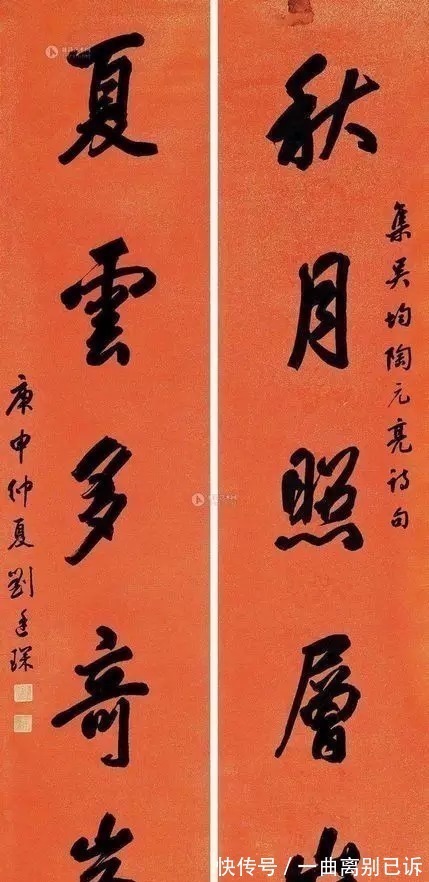 集吳均陶元亮詩句
秋月照層
夏雲多奇
庚申仲夏劉廷琛
快传号 / 一曲离别已诉